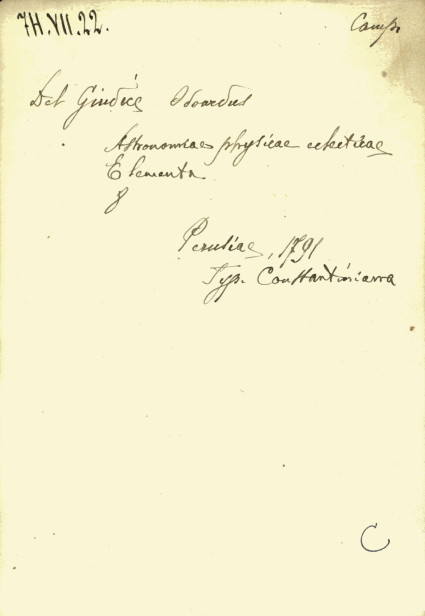 7H.VII.22.
Camp.
Del Giudice Odoardus
Astronomiae physicae eclecticae
Elementa
8
Perusiae, 1791
Typ. Constantiniana
C